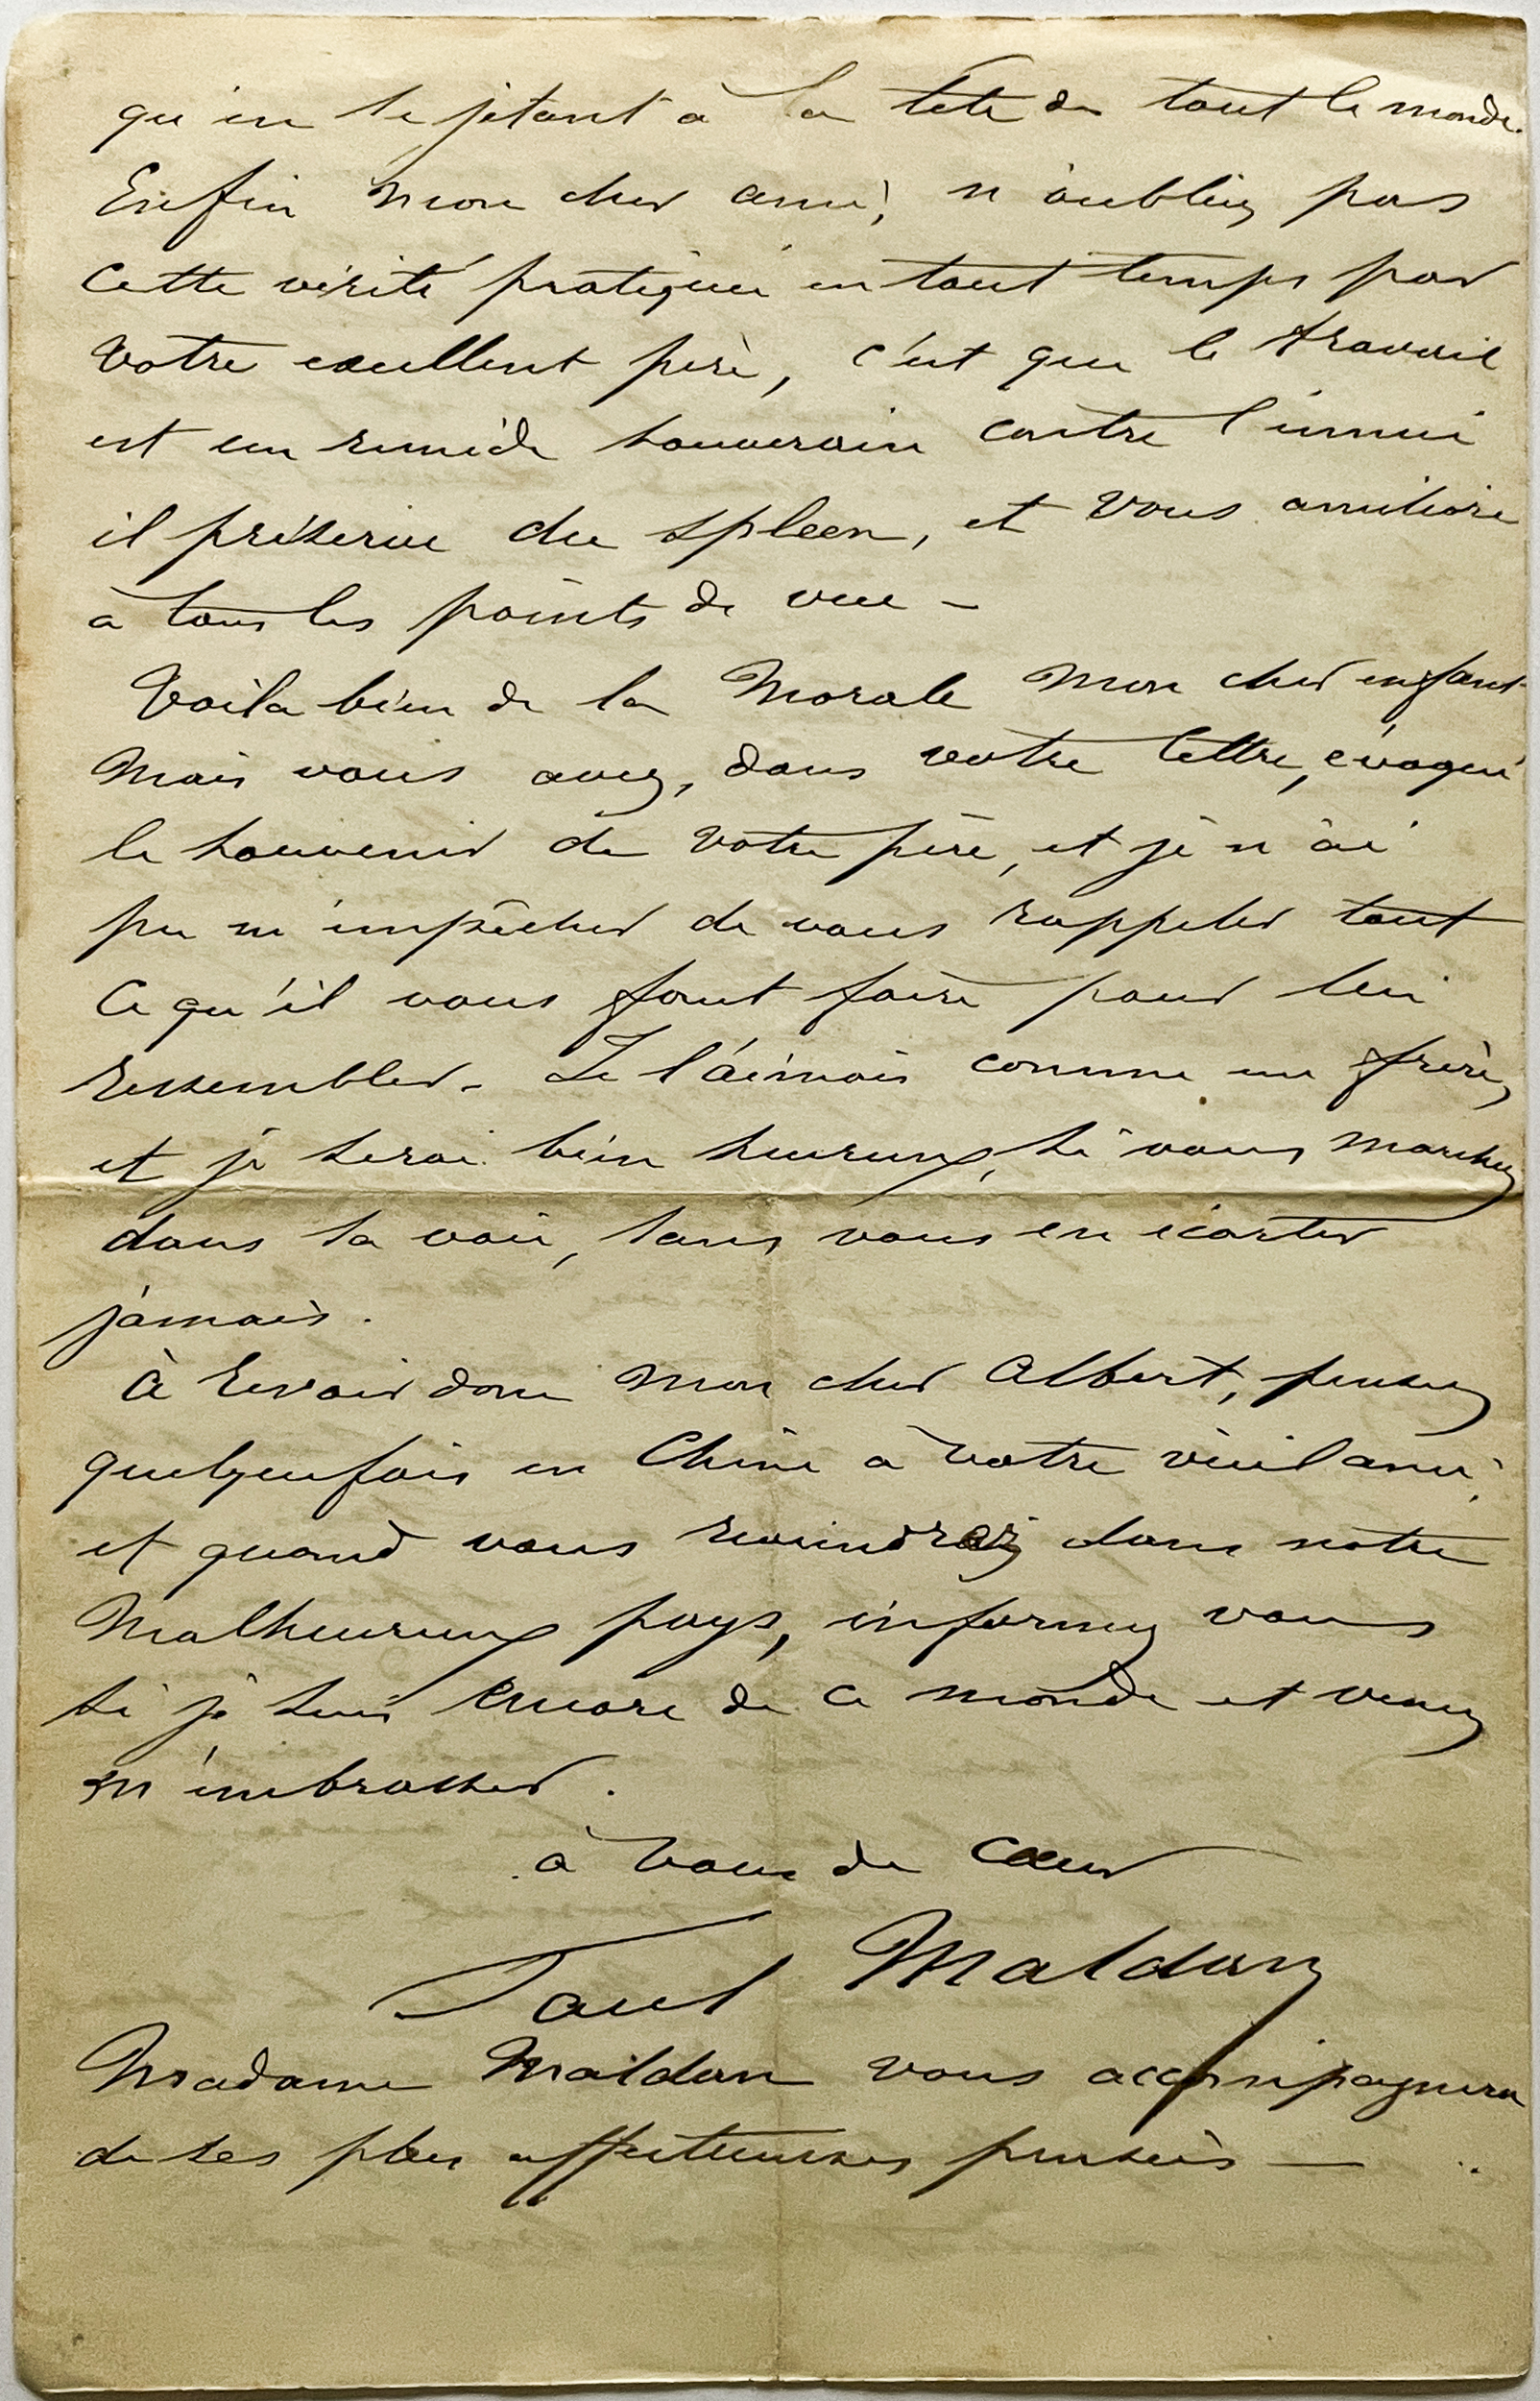 qu'en se jetant à la tête de tout le monde.
Enfin mon cher ami, n'oubliez pas
cette vérité pratiquée en tout temps par
votre excellent père, c'est que le travail
est un remède souverain contre l'ennui
il préserve du spleen, et vous améliore
à tous les points de vue -
Voila bien de la Morale mon cher enfant
Mais vous avez, dans votre lettre, évoqué
le souvenir de votre père, et je n'ai
pu m'empêcher de vous rappeler tout
ce qu'il vous faut faire pour lui
ressembler - Je l'aimais comme un frère,
et je serai bien heureux, si vous marchez
dans sa voie, sans vous en écarter
jamais.
à revoir donc mon cher Albert, pensez
quelquefois en Chine à votre vieil ami,
et quand vous reviendrez dans notre
Malheureux pays, informez vous
si je suis encore de ce monde et venez
m'embrasser.
à vous de cœur
Paul Maldan
Madame Maldan vous accompagnera
de ses plus affectueuses pensées —